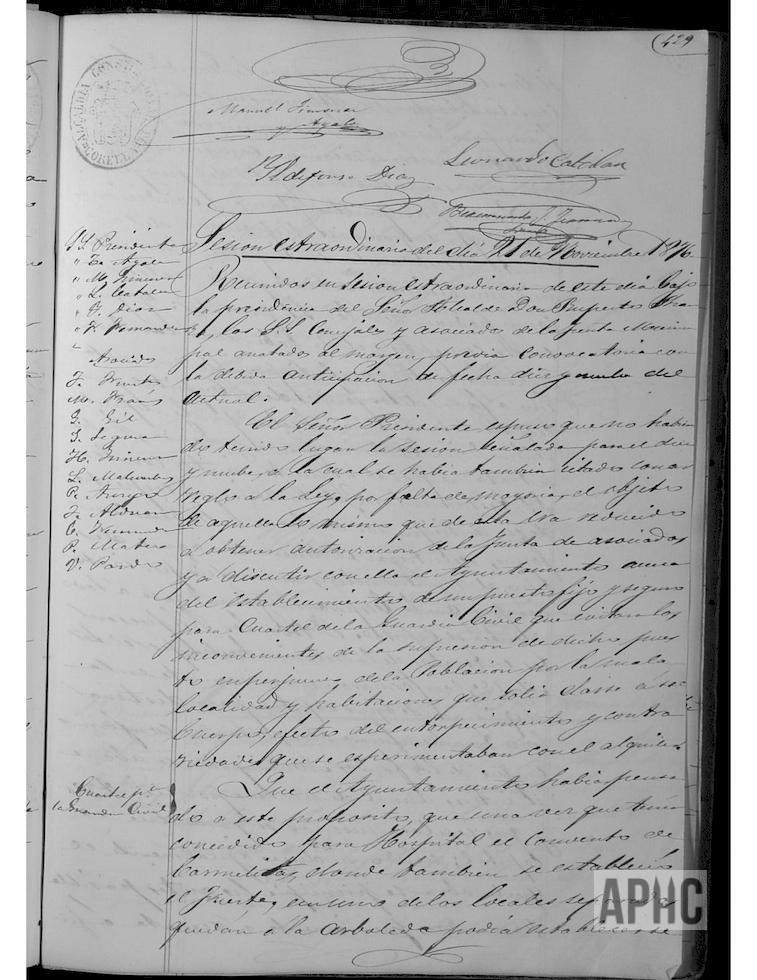 429
ALCALDIA CONSTITUCIONAL
CORELLA
Manuel Jimenez
y Ayala
Yldefonso Diaz
Leonardo Catalan
Sesion estraordinaria del dia 21 de Noviembre 1876.
S.S. Presidente
" Ayala
" M. Jimenez
" L. Catalan
" Y. Diaz
" Fernandez
Asociados
M.
J. Gil
J. Segura
H. Jimenez
L.
P. Arroyo
P. Mateo
V. Pardo
Reunidos en sesion estraordinaria de este dia bajo
la presidencia del Señor Alcalde Don Ruperto
los S.S. Concejales y asociados de la Junta Munici-
pal anotados al margen, previa convocatoria con
la debida anticipacion de fecha diez y nueve del
actual.
El Señor Presidente espuso que no habien-
do tenido lugar la sesion señalada para el diez
y nueve, a la cual se habia tambien citado con ar-
reglo a la Ley, por falta de mayoria, el objeto
de aquella lo mismo que de esta era reducido
a obtener autorizacion de la Junta de asociados
y a discutir con ella el Ayuntamiento acerca
del establecimiento de un puesto fijo y seguro
para Cuartel de la Guardia Civil que evitara los
inconvenientes de la supresion de dicho pues-
to en perjuicio de la Poblacion por la mala
localidad y habitaciones que solia darse a ese
Cuerpo, efecto del entorpecimiento y contra-
riedades que se esperimentaban con el alquiler.
Cuartel pª
la Guardia Civil
Que el Ayuntamiento habia pensa-
do a este proposito, que una vez que tenia
concedido para Hospital el Convento de
Carmelitas, donde tambien se establecio
el Fuerte, en uno de los locales separados
a la Arboleda podia establecerse
APHC